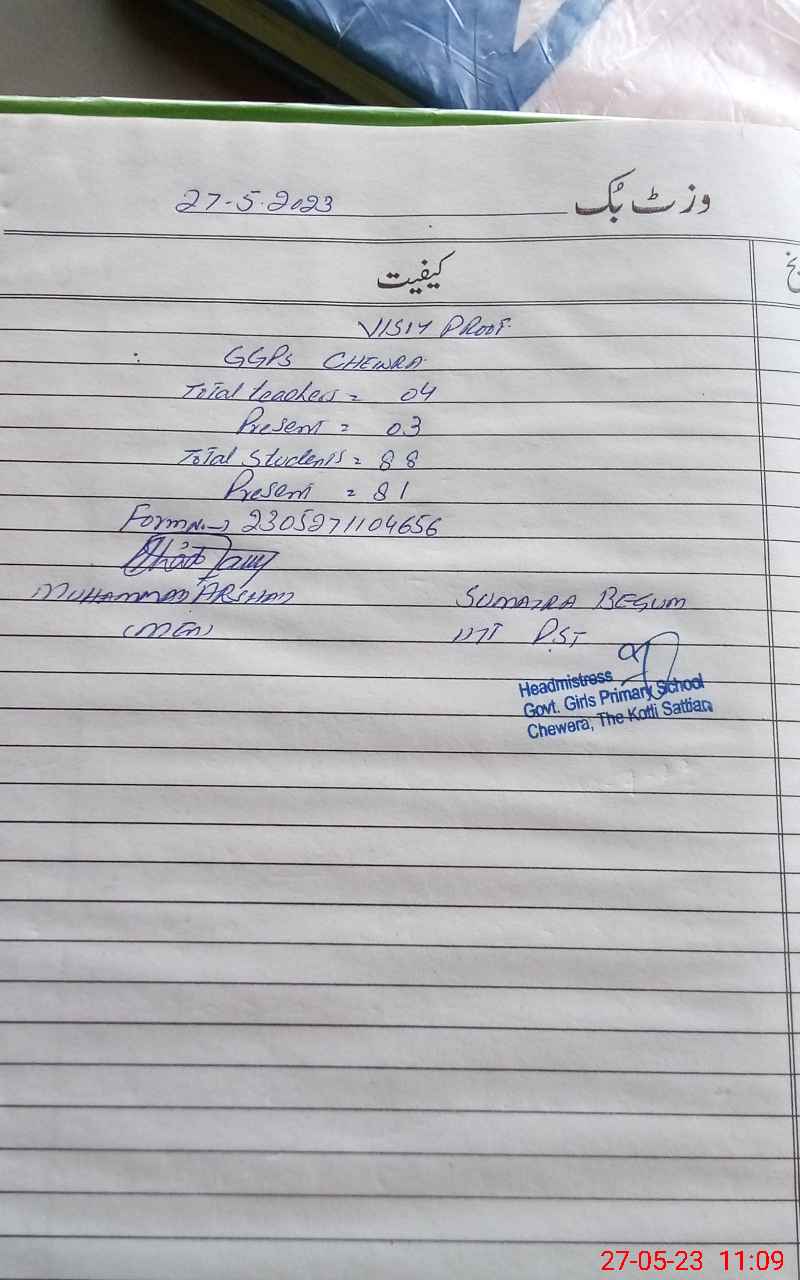 وزٹ بُک 27-5-2023
کیفیت
VISIT PROOF
GGPS CHEWRA
Total teachers = 04
Present = 03
Total Students = 88
Present = 81
Form No → 2305271104656
MUHAMMAD ARSHAD SUMAIRA BEGUM
(MEA) PST
Headmistress
Govt. Girls Primary School
Chewera, The Kotli Sattian
27-05-23 11:09